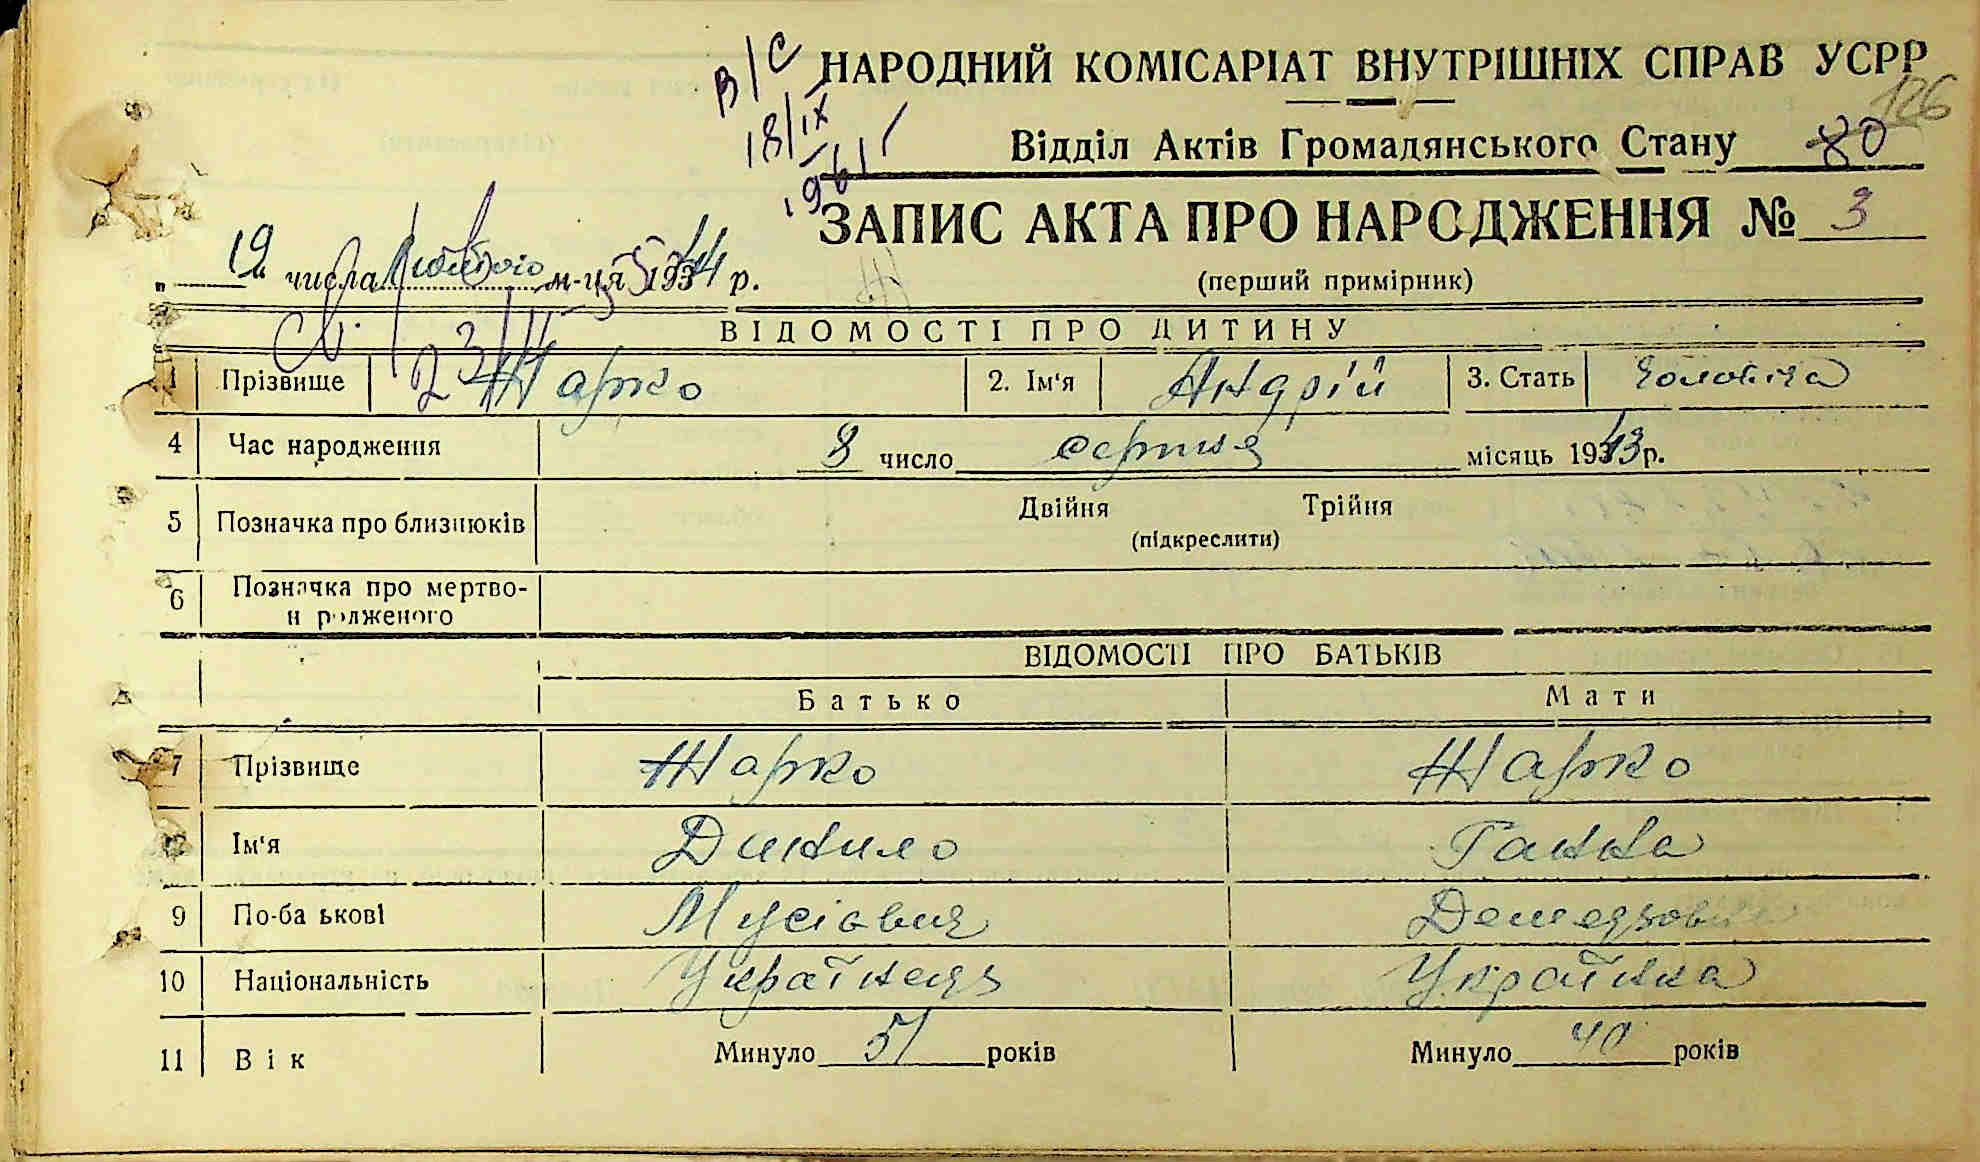 В/С
18/IX
1961 г
НАРОДНИЙ КОМІСАРІАТ ВНУТРІШНІХ СПРАВ УСРР
126
Відділ Актів Громадянського Стану 80
ЗАПИС АКТА ПРО НАРОДЖЕННЯ № 3
(перший примірник)
19 числа Лютого м-ця 1944 р.
ВІДОМОСТІ ПРО ДИТИНУ
1 Прізвище Жарко 2. Ім‘я Андрій 3. Стать чоловіча
4 Час народження 8 число серпня місяць 1943 р.
5 Позначка про близнюків Двійня Трійня
(підкреслити)
6 Позначка про мертво-
н родженого
ВІДОМОСТІ ПРО БАТЬКІВ
Батько Мати
7 Прізвище Жарко Жарко
Ім‘я Данило Ганна
9 По-ба ькові Мусієвич
10 Національність Українець Українка
11 Вік Минуло 51 років Минуло 40 років